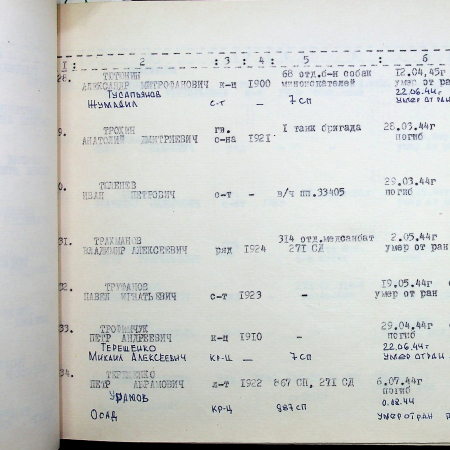 I : 2 : 3 : 4 : 5 : 6
28. ТЕТЮНИН 68 отд.б-н собак 12.04.45г
АЛЕКСАНДР МИТРОФАНОВИЧ к-н 1900 миноискателей умер от ран
Тусапьянов 22.06.44г
Жумадил с-т — 7 сп умер от ран
9. ТРОХИН гв. I танк бригада 28.03.44г
АНАТОЛИЙ ДМИТРИЕВИЧ с-на 1921 погиб
0. ТЮЛЕНЕВ 29.03.44г
ИВАН ПЕТРОВИЧ с-т - в/ч пп.33405 погиб
31. ТРАХМАНОВ 314 отд.медсанбат 2.05.44г
ВЛАДИМИР АЛЕКСЕЕВИЧ ряд 1924 271 СД умер от ран
32. ТРУФАНОВ 19.05.44г
ПАВЕЛ ИГНАТЬЕВИЧ с-т 1923 - умер от ран
33. ТРОФИМЧУК 29.04.44г
ПЕТР АНДРЕЕВИЧ к-ц 1910 - погиб
Терещенко 22.06.44г
Михаил Алексеевич кр-ц — 7 сп умер от ран
34. 6.07.44г
ПЕТР АБРАМОВИЧ л-т 1922 867 СП, 271 СД погиб
Уразов 0.08.44
Осад кр-ц 987 сп умер от ран